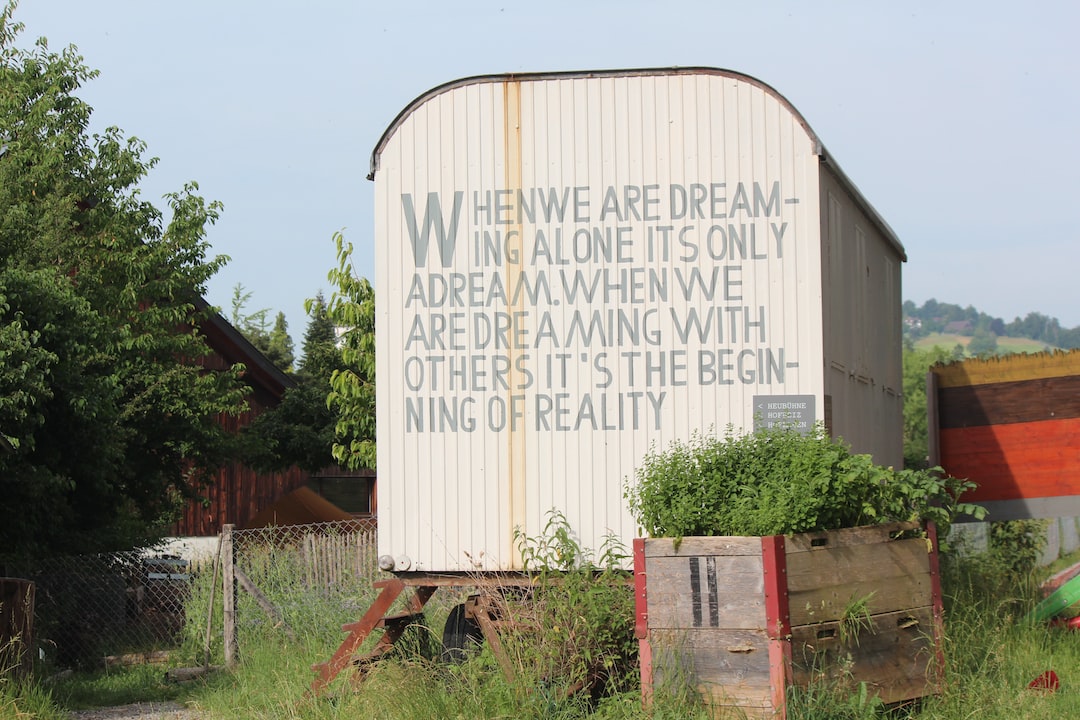 WHEN WE ARE DREAM-
ING ALONE ITS ONLY
A DREAM. WHEN WE
ARE DREAMING WITH
OTHERS IT'S THE BEGIN-
NING OF REALITY
< HEUBÜHNE